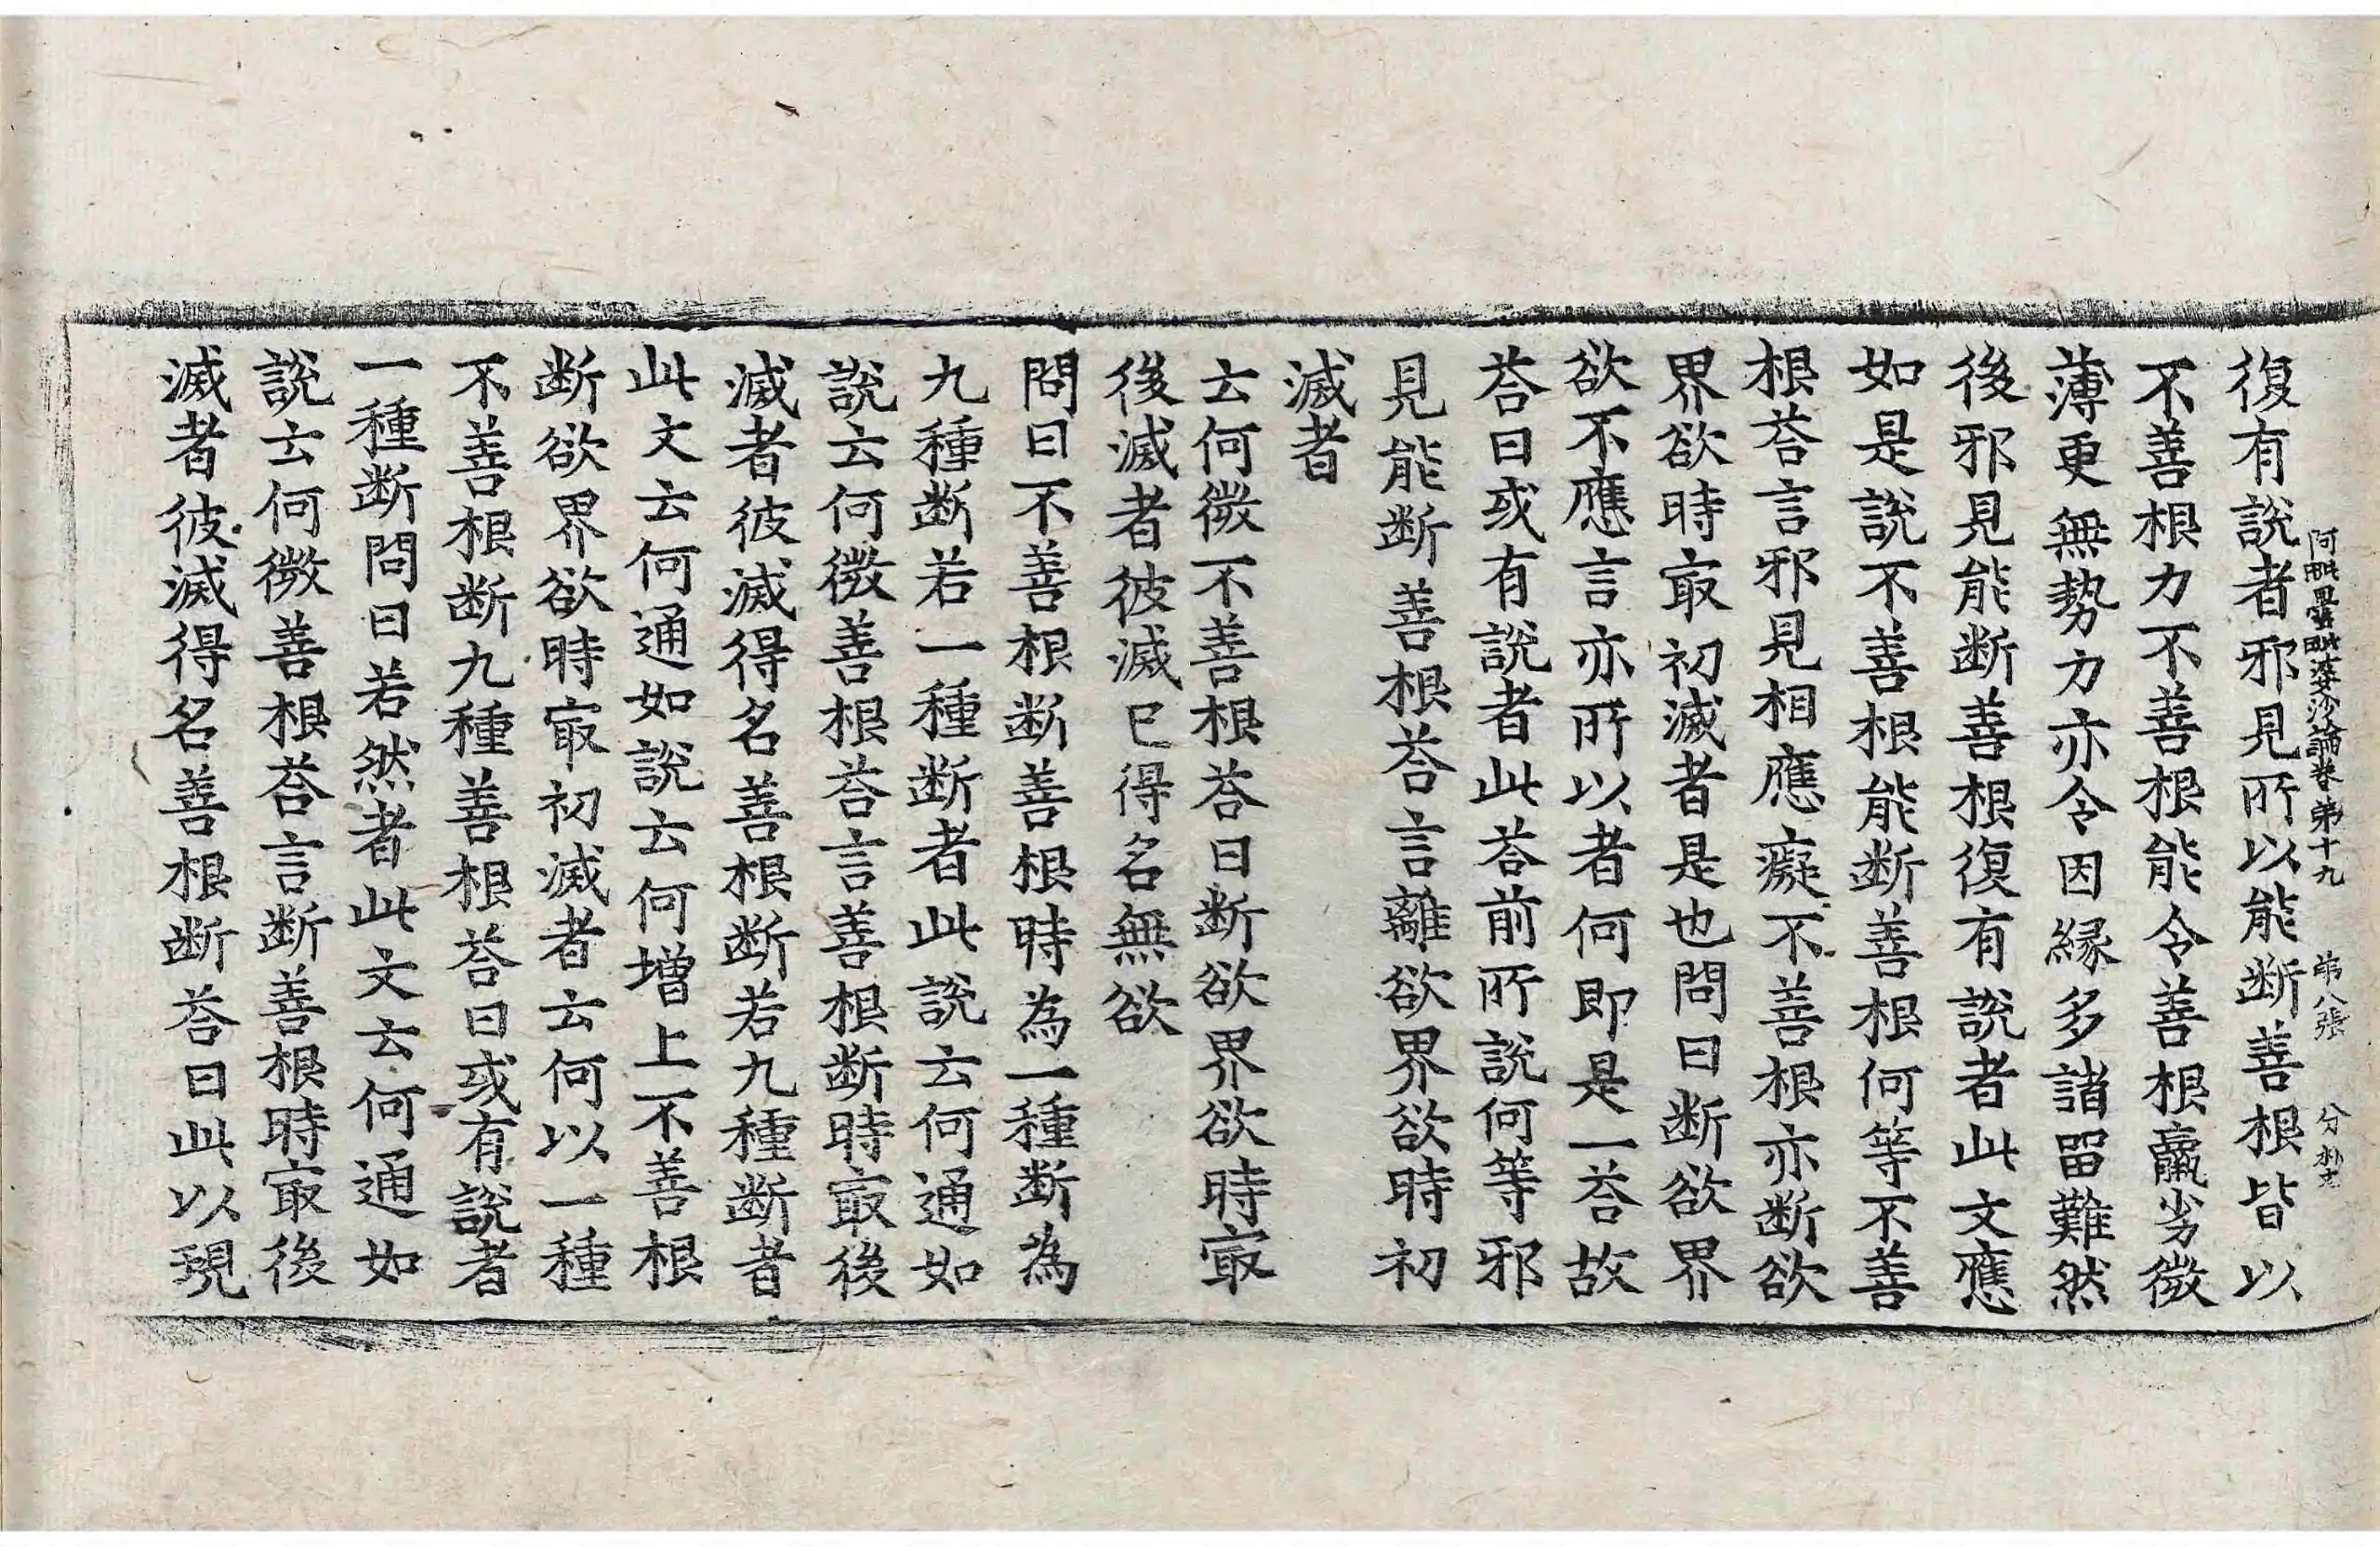 阿毗曇毗婆沙論卷第十九 第八張 分
復有說者邪見所以能断善根皆以
不善根力不善根能令善根羸劣微
薄更無勢力亦令因緣多諸留難然
後邪見能断善根復有說者此文應
如是說不善根能断善根何等不善
根荅言邪見相應癡不善根亦断欲
界欲時㝡初滅者是也問曰断欲界
欲不應言亦所以者何即是一荅故
荅曰或有說者此荅前所說何等邪
見能断善根荅言離欲界欲時初
滅者
云何微不善根荅曰断欲界欲時㝡
後滅者彼滅已得名無欲
問曰不善根断善根時為一種断為
九種断若一種断者此說云何通如
說云何微善根荅言善根断時㝡後
滅者彼滅得名善根断若九種断者
此文云何通如說云何增上不善根
断欲界欲時㝡初滅者云何以一種
不善根断九種善根荅曰或有說者
一種断問曰若然者此文云何通如
說云何微善根荅言断善根時㝡後
滅者彼滅得名善根断荅曰此以現